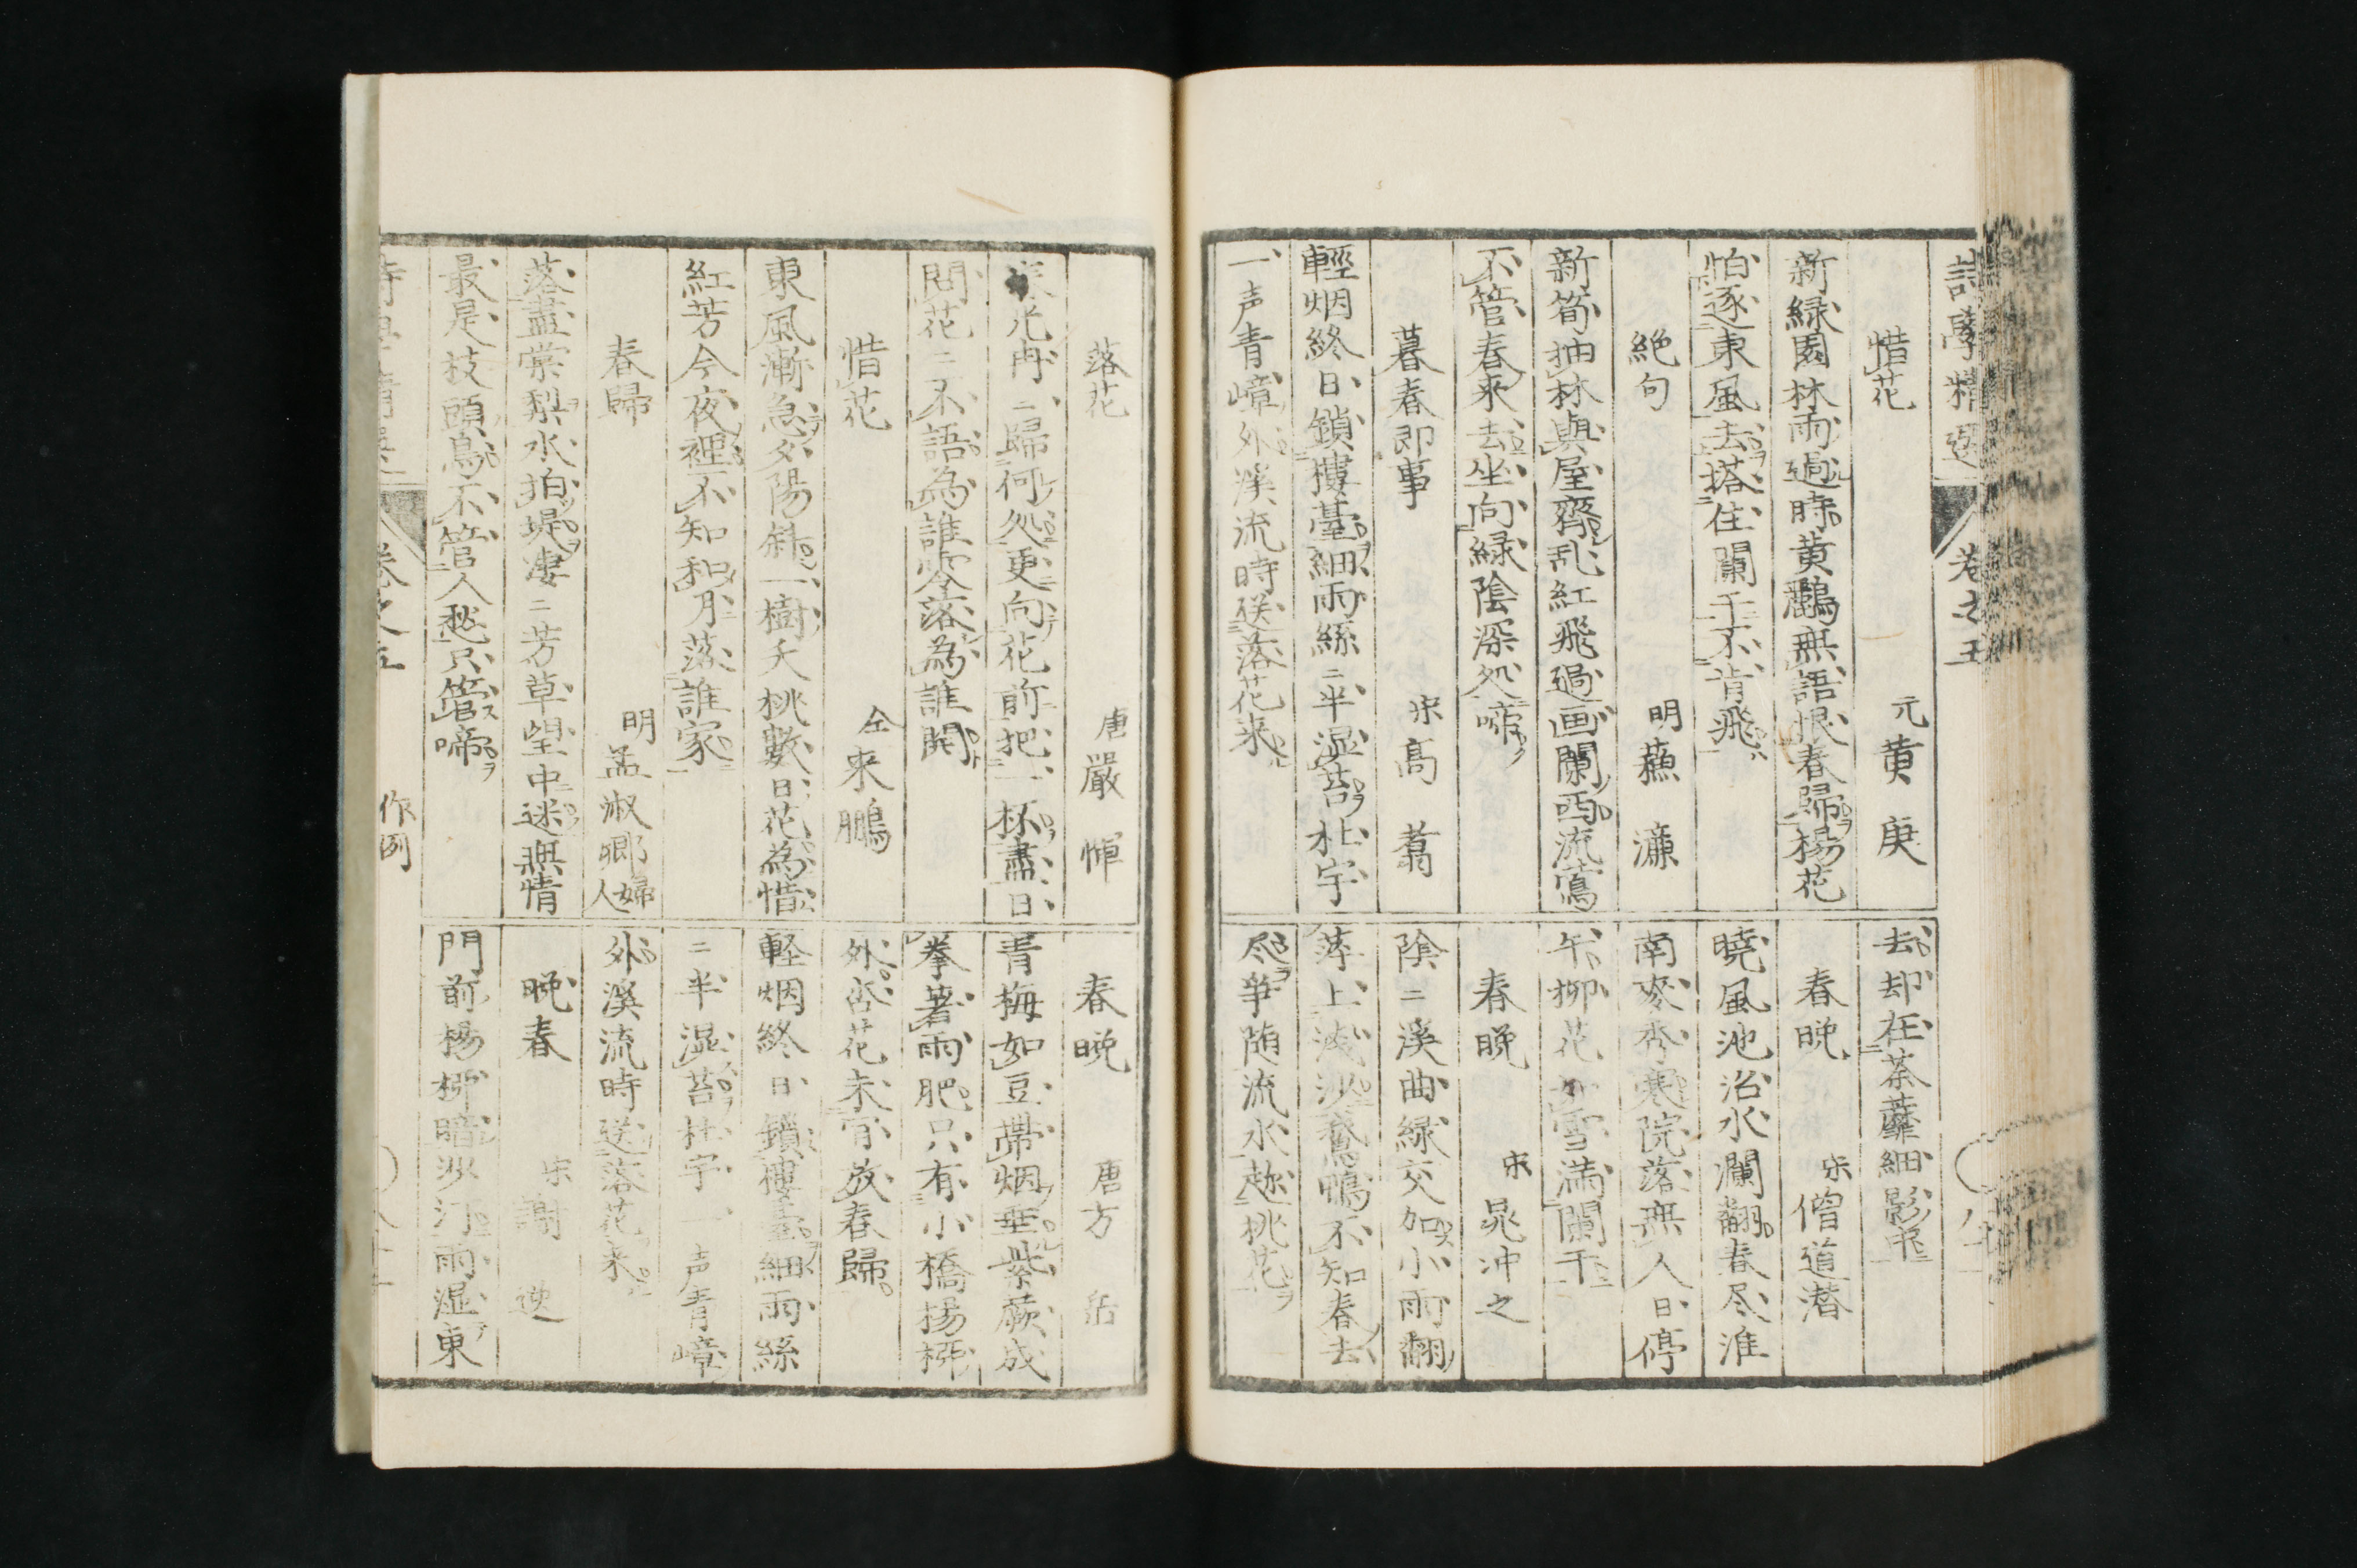 詩學精選 卷之五
惜花 元黄庚
新緑園林雨過時黄鸝無語恨春歸楊花
怕逐東風去搭住闌干不肯飛
絶句 明蘓濂
新筍抽林與屋齊乱紅飛過画闌西流鶯
不管春来去坐向緑陰深処啼
暮春即事 宋高翥
輕烟終日鎖樓臺細雨絲二半湿苔杜宇
一声青嶂外溪流時送落花来
去却在荼蘼細影中
春晩 宋僧道潜
曉風池沼水瀾翻春尽淮
南麥秀寒院落無人日停
午柳花如雪満闌干
春晩 宋晁冲之
陰二溪曲緑交加小雨翻
萍上浅沙鵞鴨不知春去
尽争随流水趂桃花
落花 唐嚴惲
光冉二歸何処更向花前把一杯盡日
問花二不語為誰零落為誰開
惜花 仝来鵬
東風漸急夕陽斜一樹夭桃數日花為惜
紅芳今夜裡不知和月落誰家
春歸 明孟淑卿婦人
落盡棠梨水拍堤凄二芳草望中迷無情
最是枝頭鳥不管人愁只管啼
春晩 唐方岳
青梅如豆帶烟垂紫蕨成
拳著雨肥只有小橋楊柳
外杏花未肯放春歸
軽烟終日鎖樓臺細雨絲
二半湿苔杜宇一声青嶂
外溪流時送落花来
晩春 宋謝逸
門前楊柳暗沙汀雨湿東
卷之五 作例